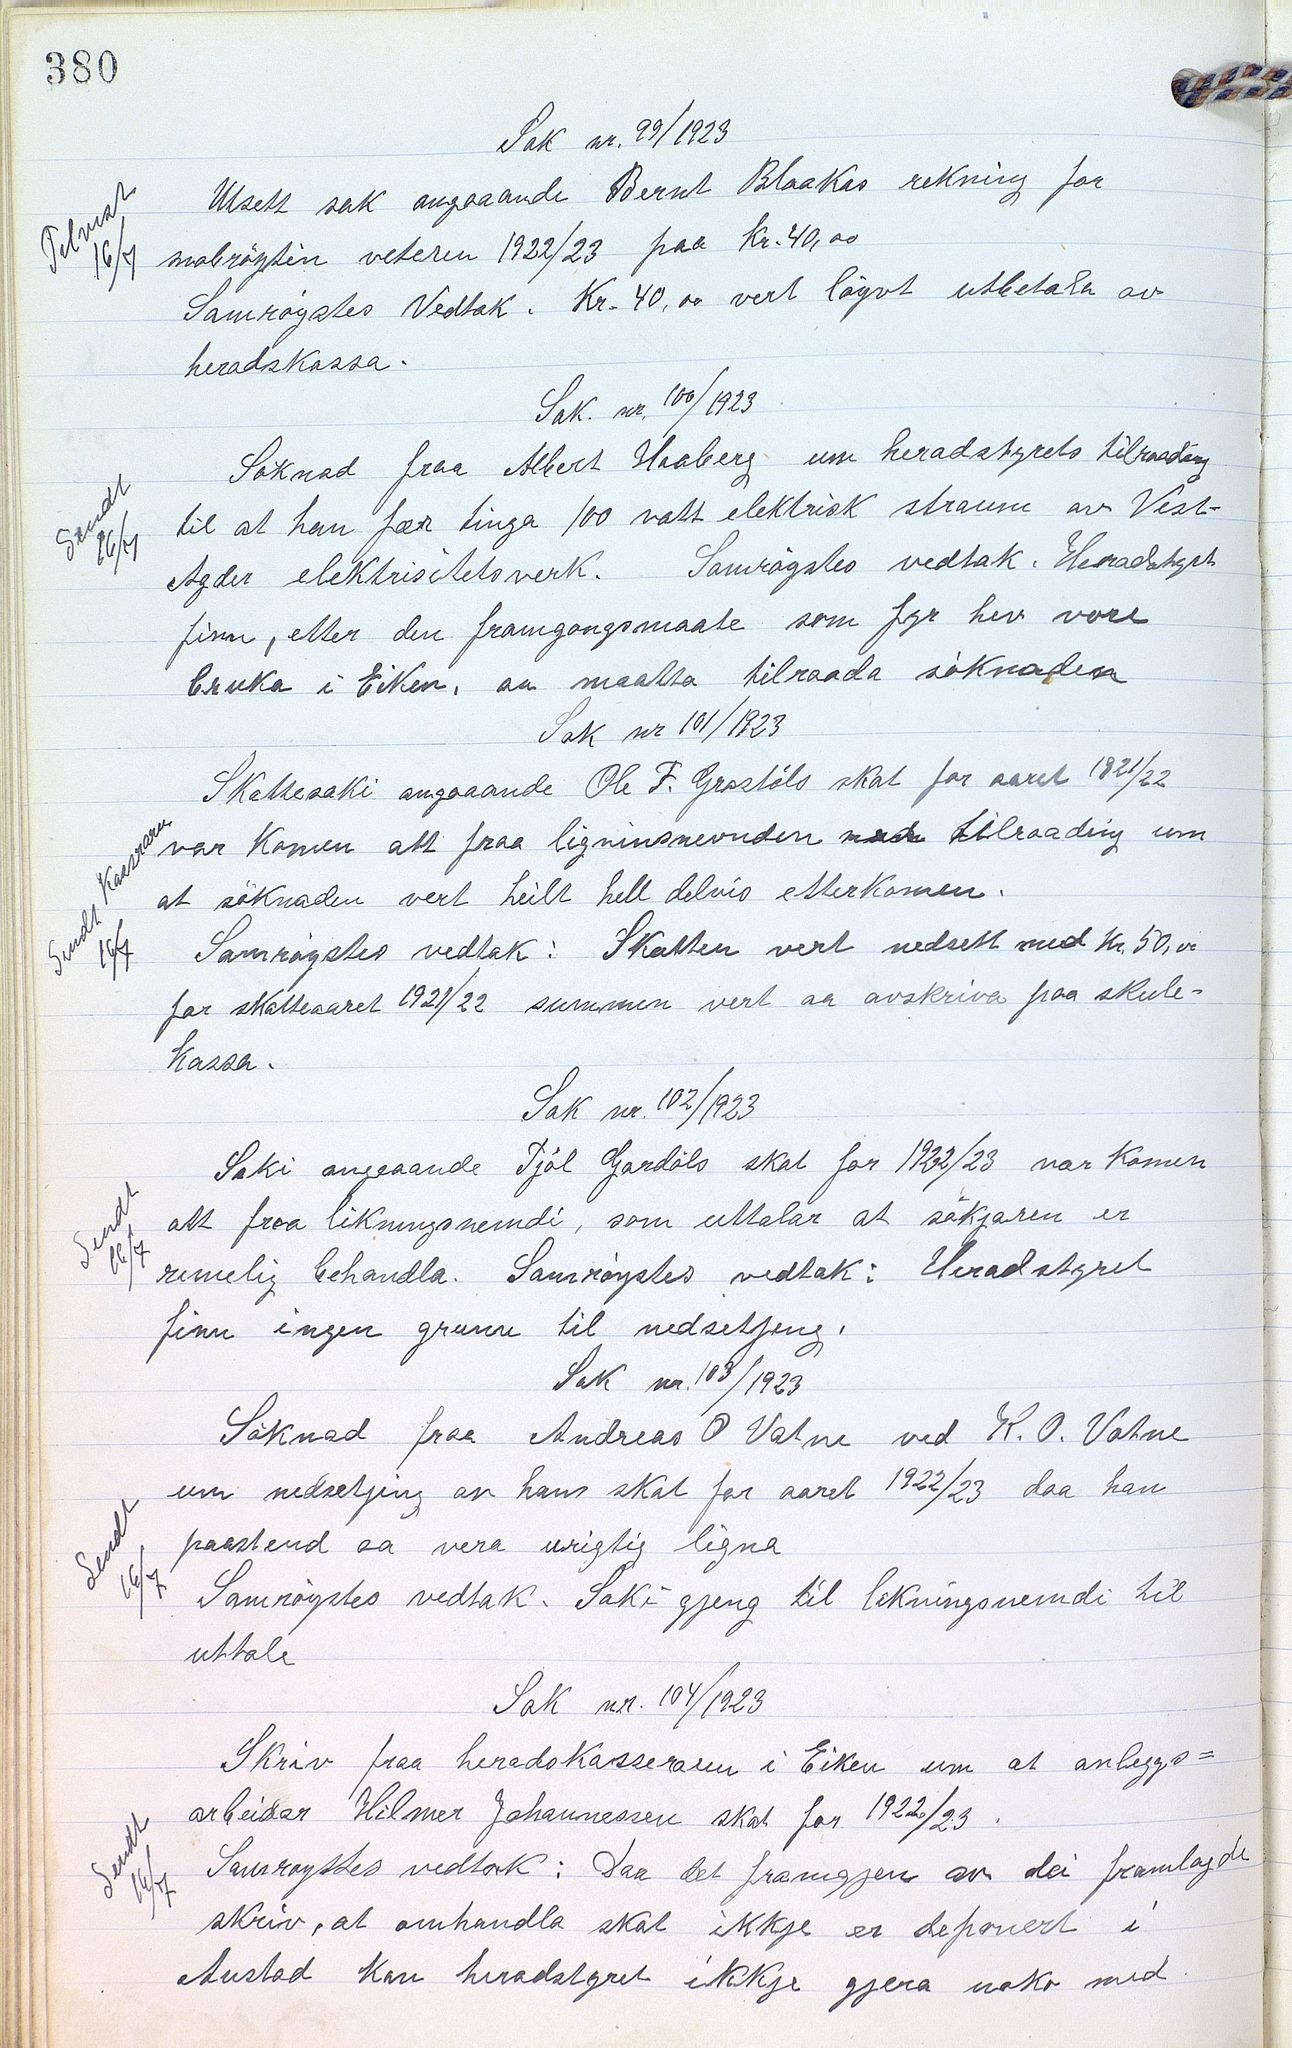 380
Sak nr. 99/1923
Utsett sak angaaande Bernt Blaakas rekning for
veteren 1922/23 paa Kr. 40,00
Samröystes Vedtak. Kr. 40,00 vert löyvt utbetala av
heradskassa.
Tilvist
16/7
Sak. nr. 100/1923
Söknad fraa Albert Haaberg um heradstyrets tilraading
til at han fær tinga 100 vatt elektrisk straum av Vest-
Agder elektrisitetsverk. Samröystes vedtak. Heradstyret
finn, etter den framgongsmaate som fyr hev vore
bruka i Eiken, aa maatta tilraada söknaden
Sendt
16/7
Sak nr 101/1923
Skattesaki angaaande Ole F. Grostöls skat for aaret 1921/22
var komen att fraa ligninsnevnden med tilraading um
at söknaden vert heilt hell delvis etterkomen.
Samröystes vedtak: Skatten vert nedsett med Kr. 50,00
for skatteaaret 1921/22 summen vert aa avskriva paa skule-
kassa.
Sendt Kasseraren
16/7
Sak nr. 102/1923
Saki angaaande Tjöl Gardöls skat for 1922/23 var komen
att fraa likningsnemdi, som uttalar at sökjaren er
rimelig behandla. Samröystes vedtak: Heradstyret
finn ingen grunn til nedsetjing.
Sendt
16/7
Sak nr. 103/1923
Söknad fraa Andreas O Vatne ved K. O. Vatne
um nedsetjing av hans skat for aaret 1922/23 daa han
paastend aa vera urigtig ligna
Samröystes vedtak. Saki gjeng til likningsnemdi til
uttale
Sendt
16/7
Sak nr. 104/1923
Skriv fraa heradskasseraren i Eiken um at anleggs=
arbeidar Hilmer Johannessen skat for 1922/23.
Samröystes vedtak: Daa det framgjen av dei framlagde
skriv, at omhandla skat ikkje er deponert i
Austad kan heradstyret ikkje gjera noko med
Sendt
16/7